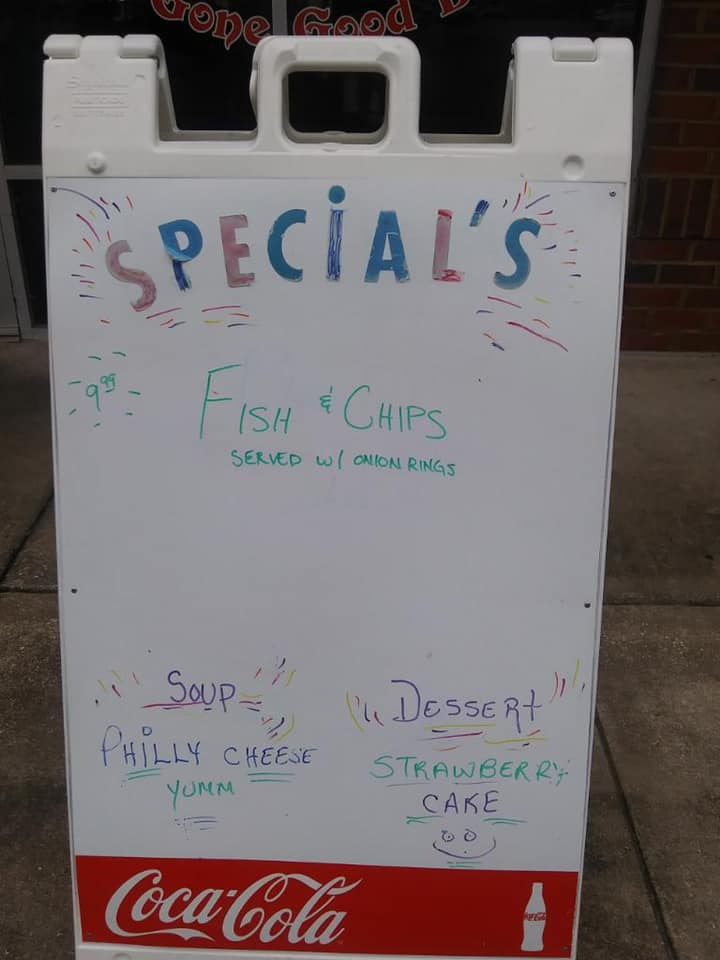 Gone Good
SPECiAL'S
9.99
FISH & CHIPS
SERVED W/ ONION RINGS
SOUP
PHiLLY CHEESE
YUMM
DESSERt
STRAWBERRY
CAKE
Coca-Cola